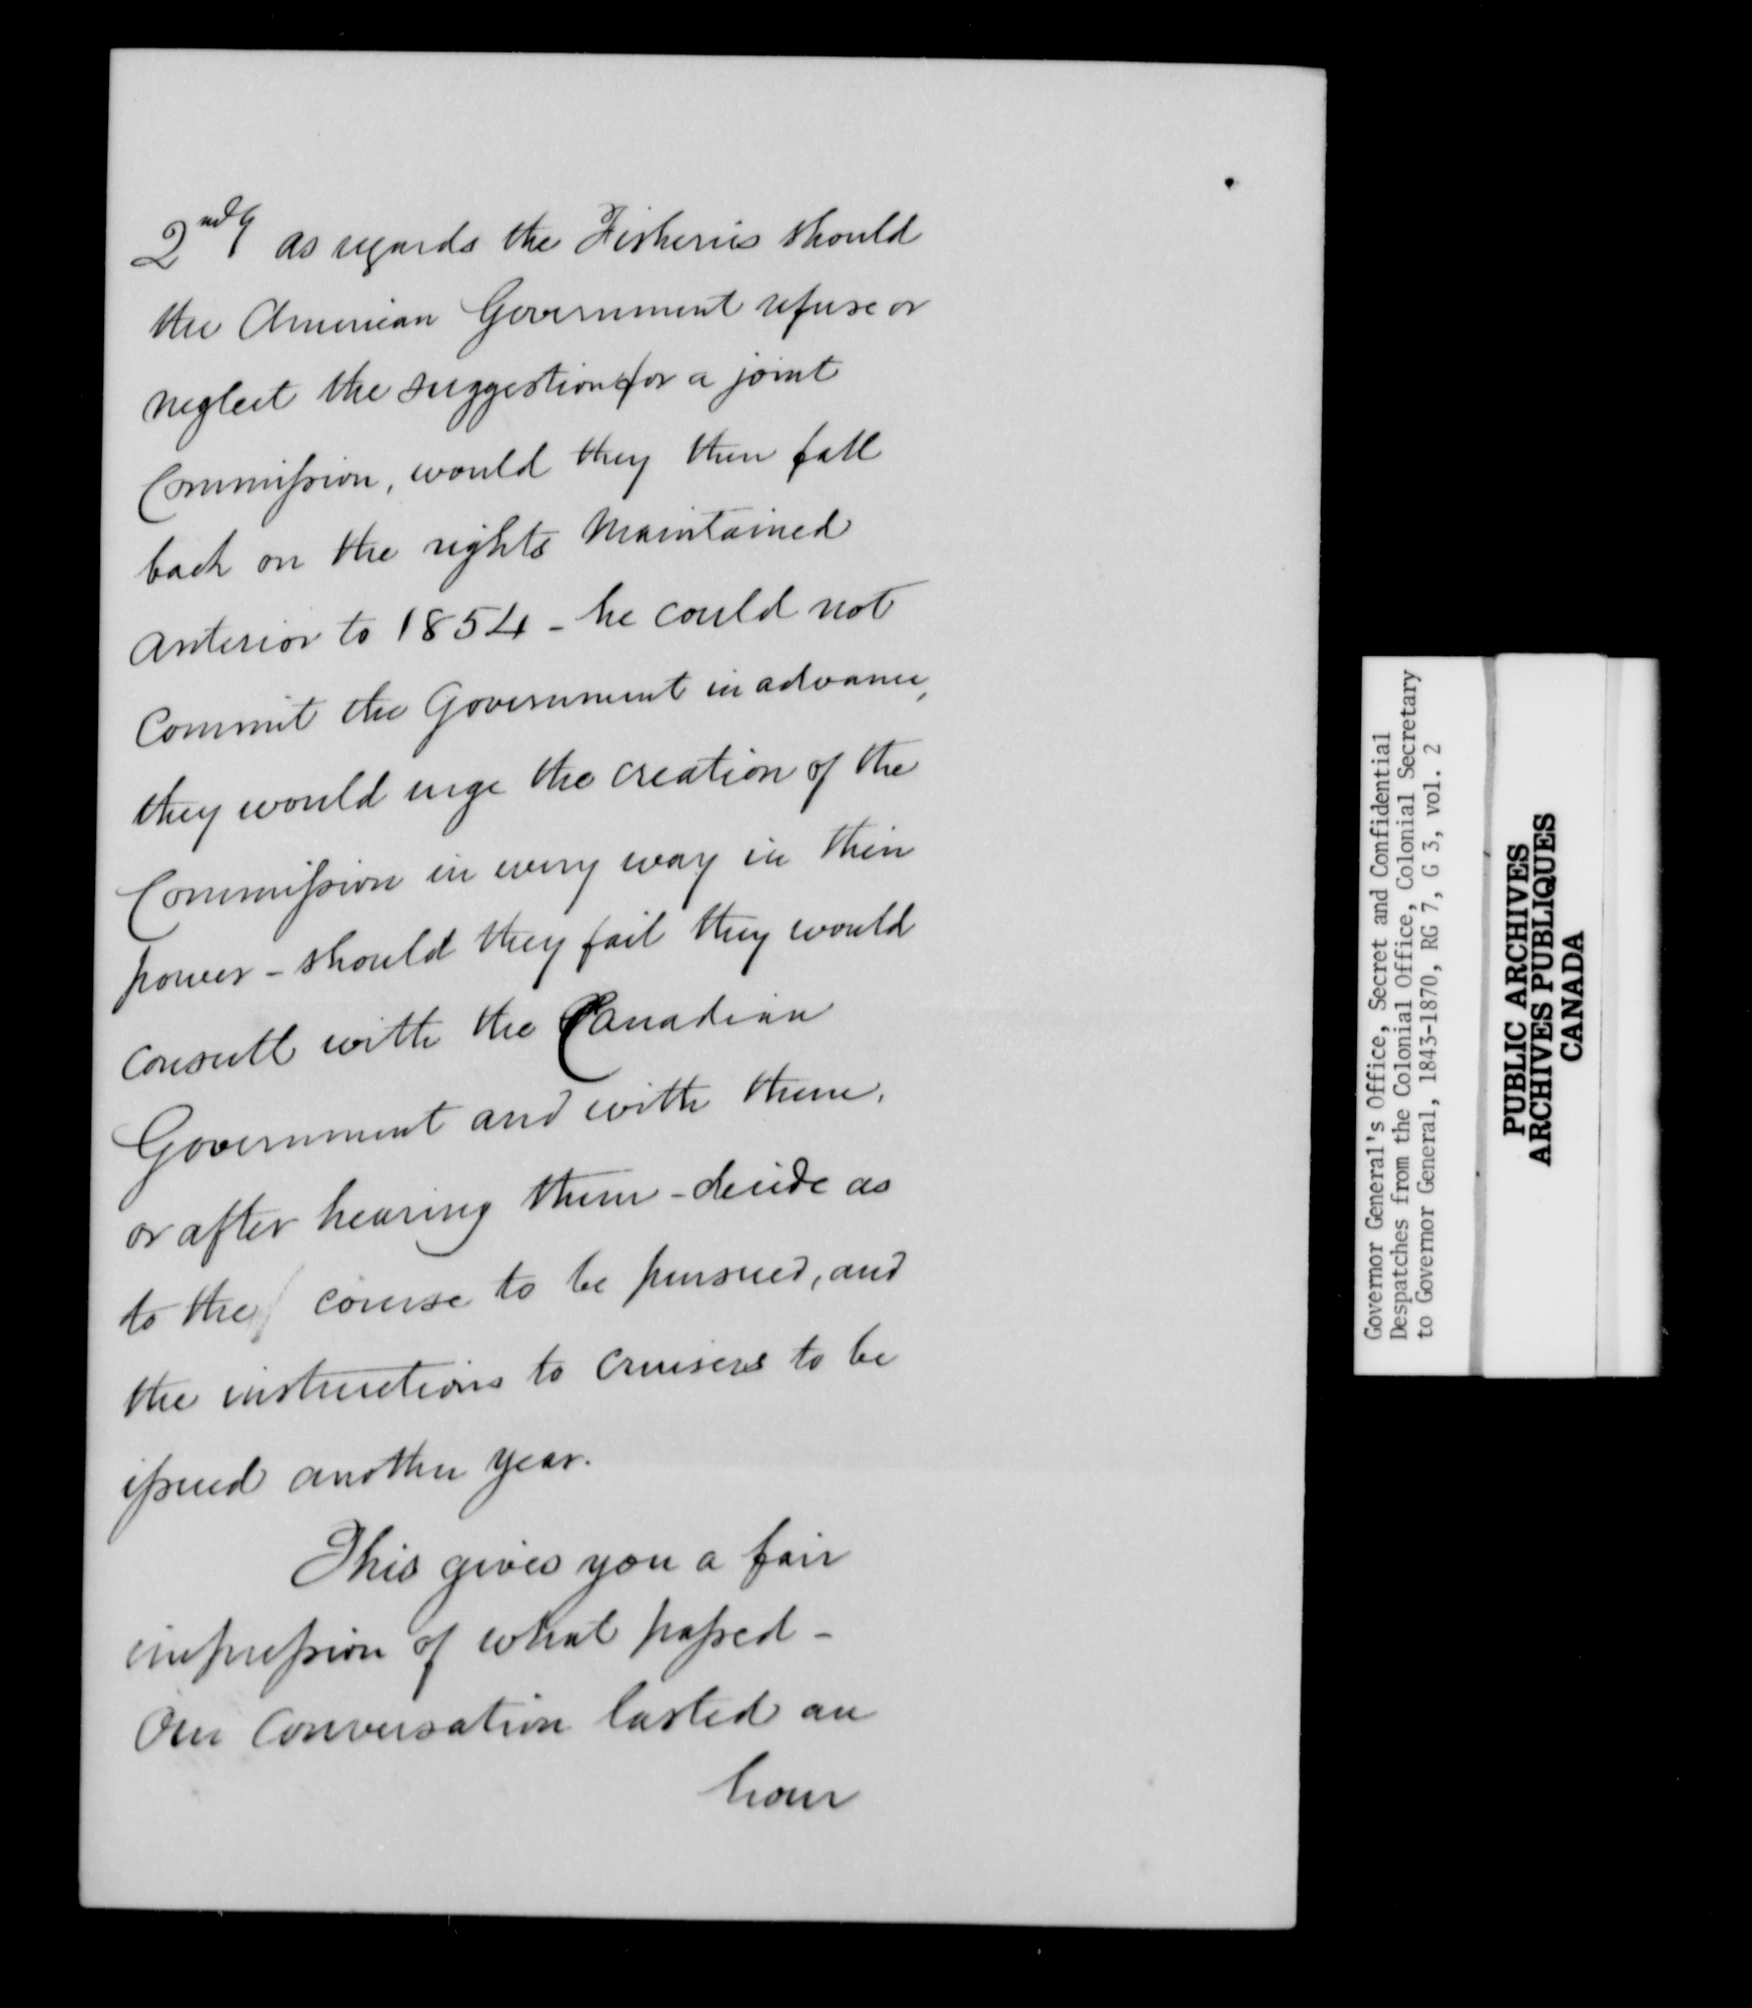 2ndly as regards the Fisheries should
the American Government refuse or
neglect the suggestion for a joint
Commission, would they then fall
back on the rights Maintained
anterior to 1854 - he could not
commit the Government in advance,
they would urge the creation of the
Commission in every way in their
power - should they fail they would
consult with the Canadian
Government and with them,
or after hearing them - decide as
to the course to be pursued, and
the instructions to cruisers to be
issued another year.
This gives you a fair
impression of what passed -
Our Conversation lasted an
hour
Governor General's Office, Secret and Confidential
Despatches from the Colonial Office, Colonial Secretary
to Governor General, 1843-1870, RG 7, G 3, vol. 2
PUBLIC ARCHIVES
ARCHIVES PUBLIQUES
CANADA